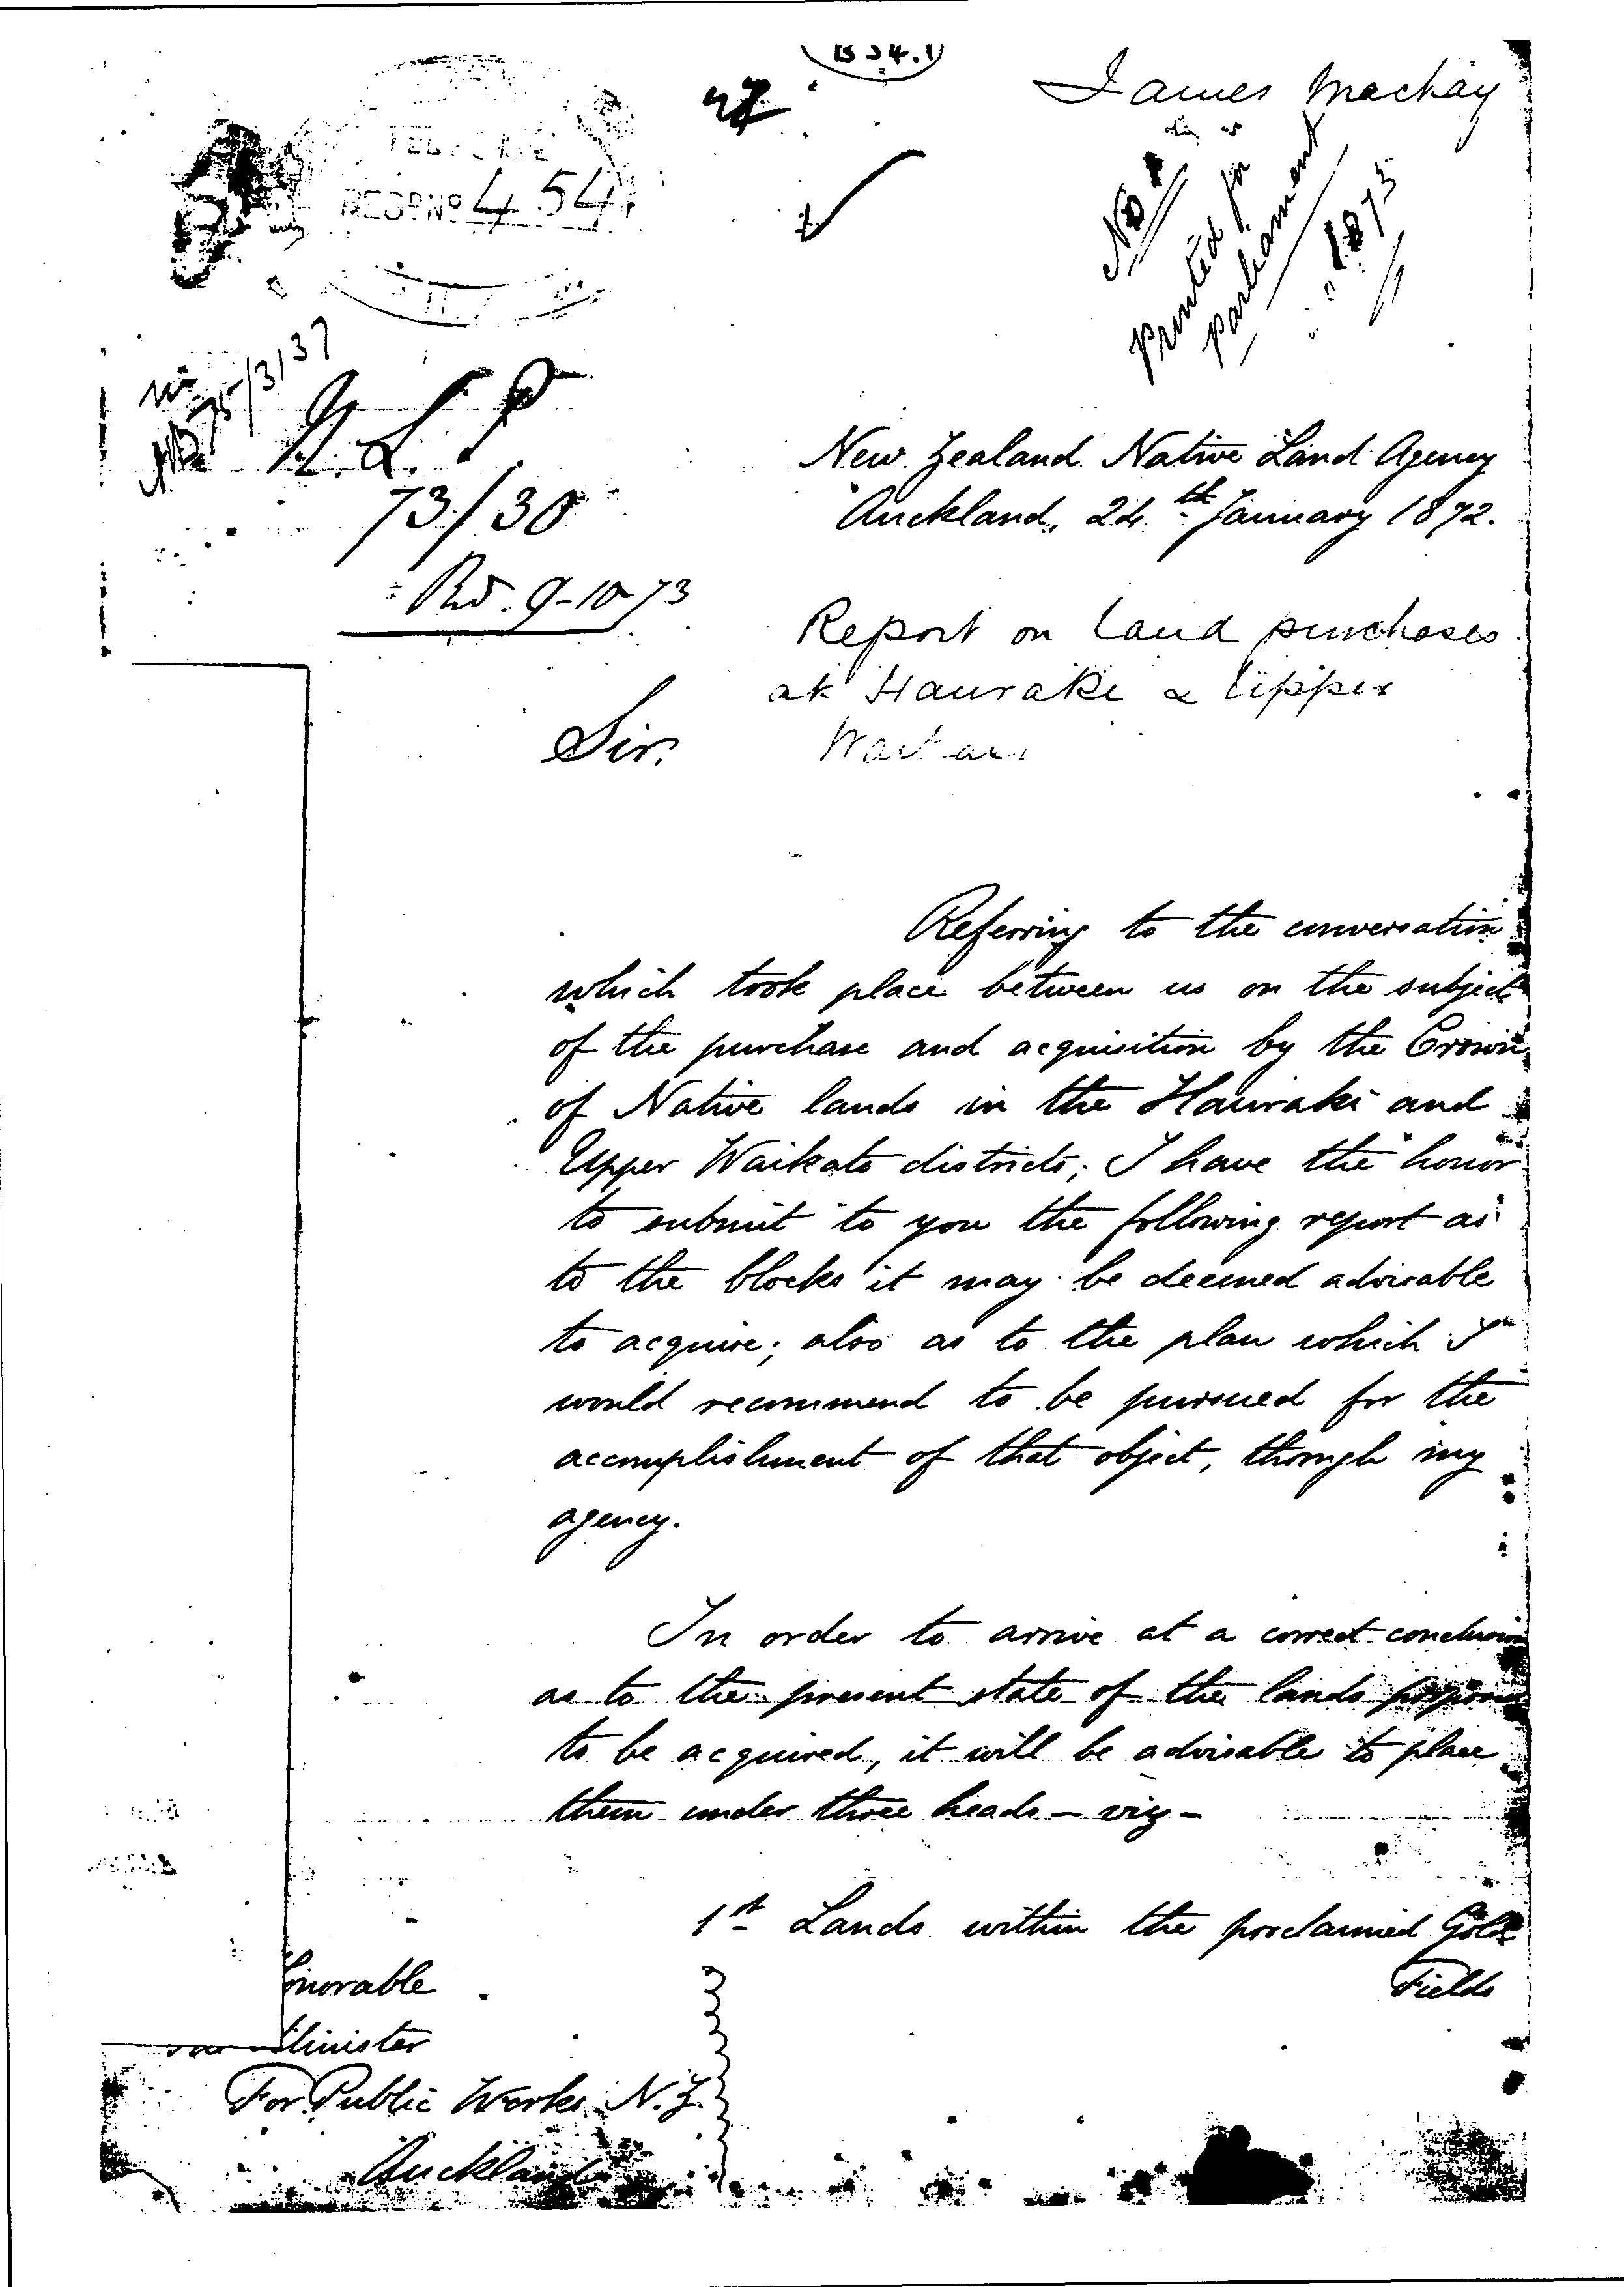 B 34.1
James Mackay
REGD. No 454
No 1
Printed for
parliament
1873
75/3137
N. L. P
73/30
Rd. 9-10-73
New Zealand Native Land Agency
Auckland, 24th January 1872.
Report on Land purchases
at Hauraki & Upper
Sir.
Referring to the conversation
which took place between us on the subject
of the purchase and acquisition by the Crown
of Native lands in the Hauraki and
Upper Waikato districts; I have the honor
to submit to you the following report as
to the blocks it may be deemed advisable
to acquire; also as to the plan which I
would recommend to be pursued for the
accomplishment of that object, though my
agency.
In order to arrive at a correct conclusion
as to the present state of the lands
to be acquired, it will be advisable to place
them under three heads - viz -
1st Lands within the proclaimed Gold
Fields
onorable
Minister
For Public Works N.Z.
Auckland